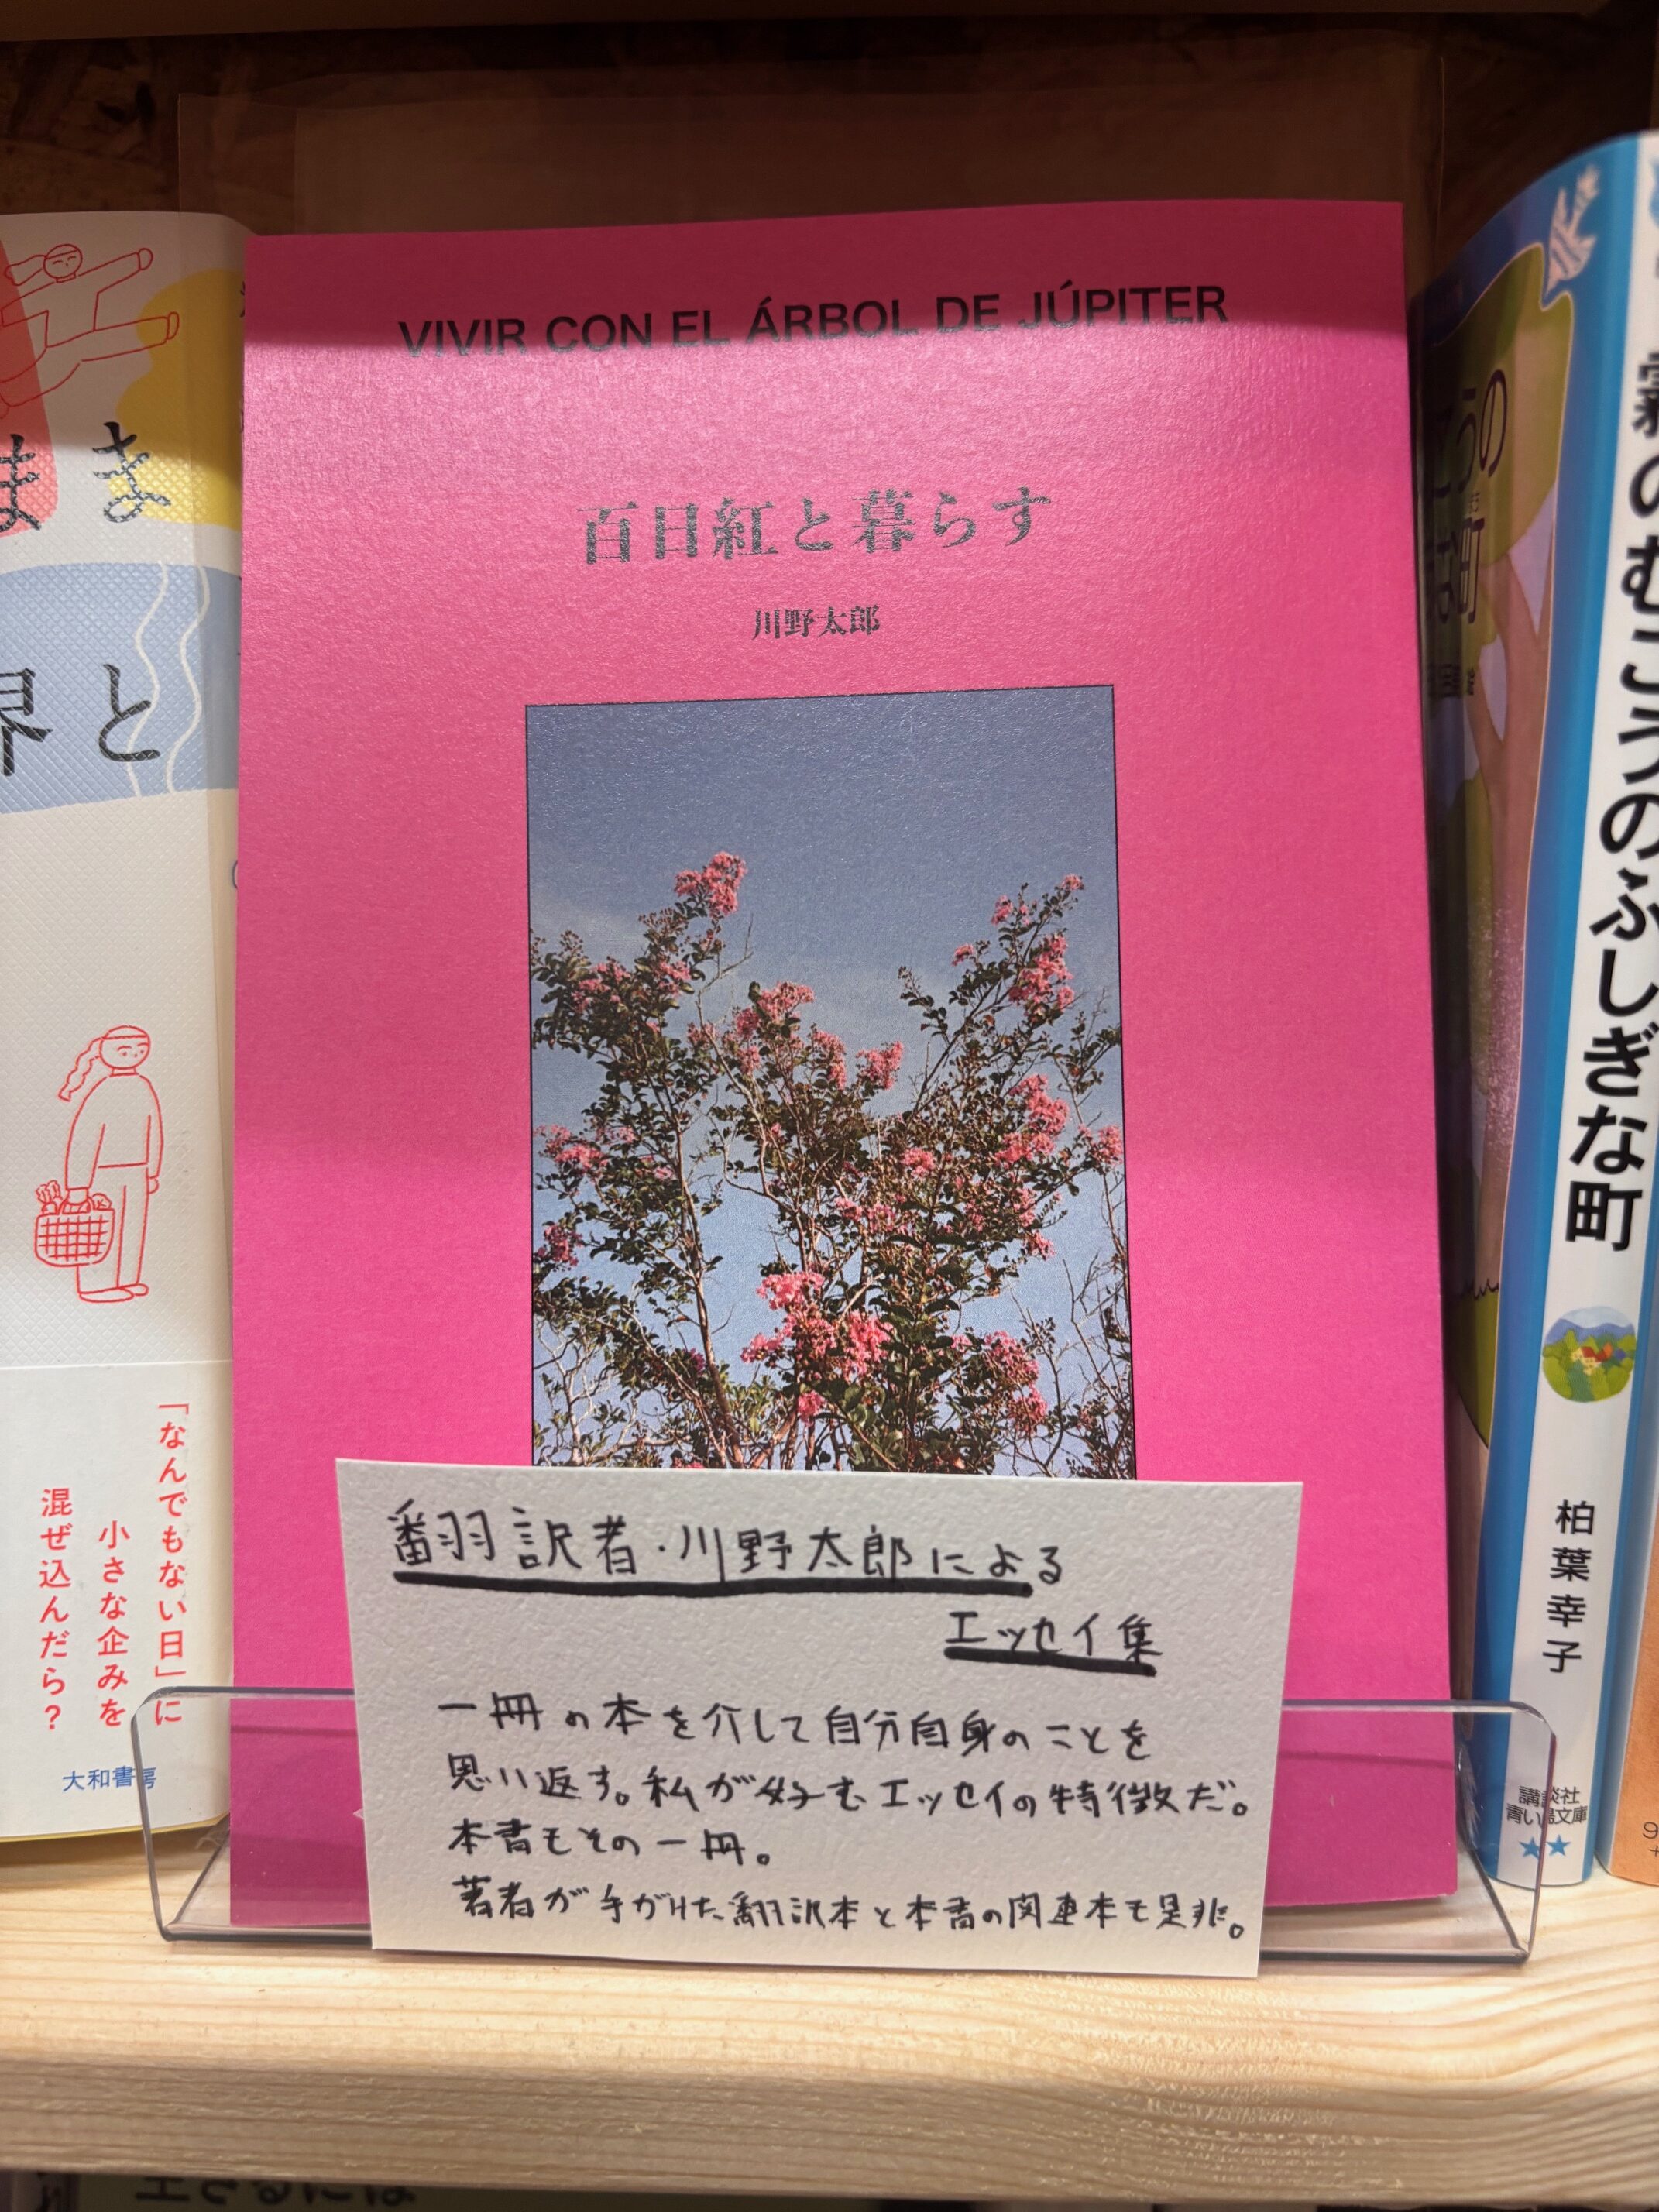 VIVIR CON EL ÁRBOL DE JÚPITER
百日紅と暮らす
川野太郎
翻訳者・川野太郎による
エッセイ集
一冊の本を介して自分自身のことを
思い返す。私が好むエッセイの特徴だ。
本書もその一冊。
著者が手がけた翻訳本と本書の関連本も是非。
まま
界と
「なんでもない日」に
小さな企みを
混ぜ込んだら?
大和書房
霧のむこうのふしぎな町
柏葉幸子
講談社
青い鳥文庫
こうの
町